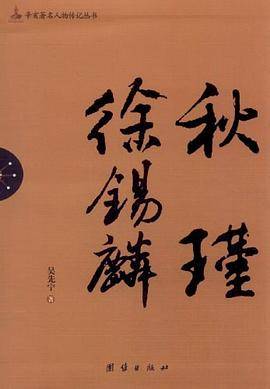 辛亥著名人物传记丛书
秋瑾
徐锡麟
吴先宁 著
团结出版社